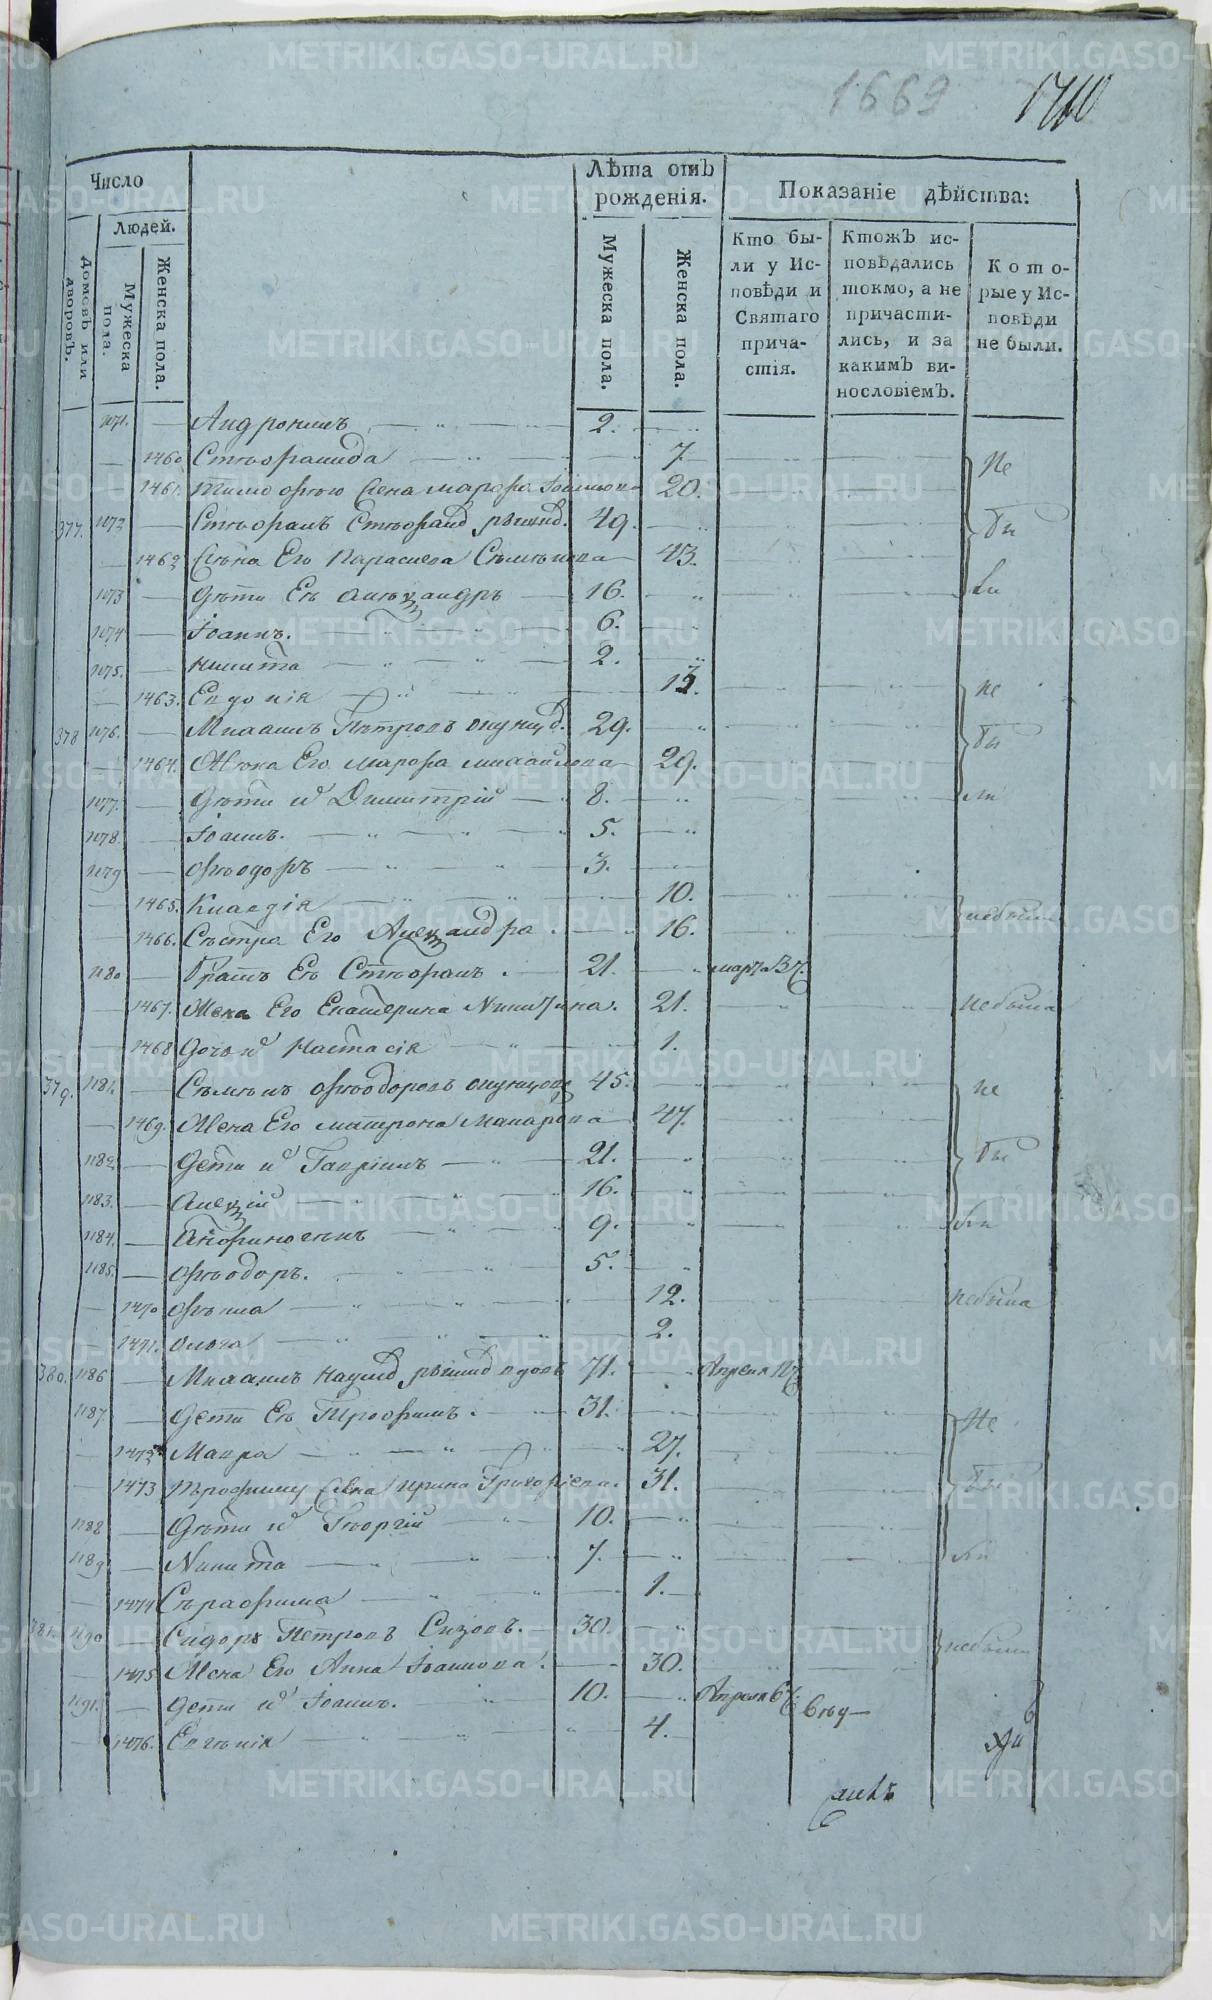 1669 1710
Число
Лѣта отъ рожденія.
Показаніе дѣйства:
Людей.
Домовъ или дворовъ.
Мужеска пола.
Женска пола.
Мужеска пола.
Женска пола.
Кто были у Исповѣди и Святаго причастія.
Ктожъ исповѣдались токмо, а не причастились, и за какимъ винословіемъ.
Которые у Исповѣди не были.
1071. Андроникъ 2.
1460 Стефанида 7. Не
1461. 20.
377. 1072 Стефанъ 49. бы
1462 Жена Его Параскева Семенова 43.
1073 Дети Ихъ Александръ 16. ли
1074 Іоаннъ. 6.
1075. Никита 2.
1463. Евдокія 13. не
378 1076. Михаилъ Петровъ 29. бы
1464. Жена Его Марфа Михайлова 29.
1077. Дети ихъ Димитрій 8. ли
1078. Іоаннъ. 5.
1079 Феодоръ 3.
1465. Клавдія 10. небыли
1466. Сестра Его Александра 16.
1180 Братъ Его Стефанъ. 21. марта
1467. Жена Его Екатерина Никитина. 21. небыла
1468 Дочь ихъ Настасія 1.
379. 1181. Семенъ Феодоровъ 45. не
1469. Жена Его Матрона Макарова 47.
1182 Дети ихъ Гавріилъ 21. бы
1183. Алексій 16.
1184. Анфиногенъ 9. ли
1185. Феодоръ. 5.
1470 Фекла 12. небыла
1471. Ольга 2.
380. 1186 Михаилъ вдовъ 71. Апреля
1187. Дети Его Трофимъ. 31. Не
1472. Мавра 27.
1473 Трофиму Жена Ирина Григорьева. 31. бы
1188 Дети ихъ Георгій 10.
1189 Никита 7. ли
1474 Серафима 1.
381. 1190 Сидоръ Петровъ Сизовъ. 30. небыли
1475 Жена Его Анна Іоаннова. 30.
1191. Дети ихъ Іоаннъ. 10. Апреля
1476. Евгенія 4.
METRIKI.GASO-URAL.RU